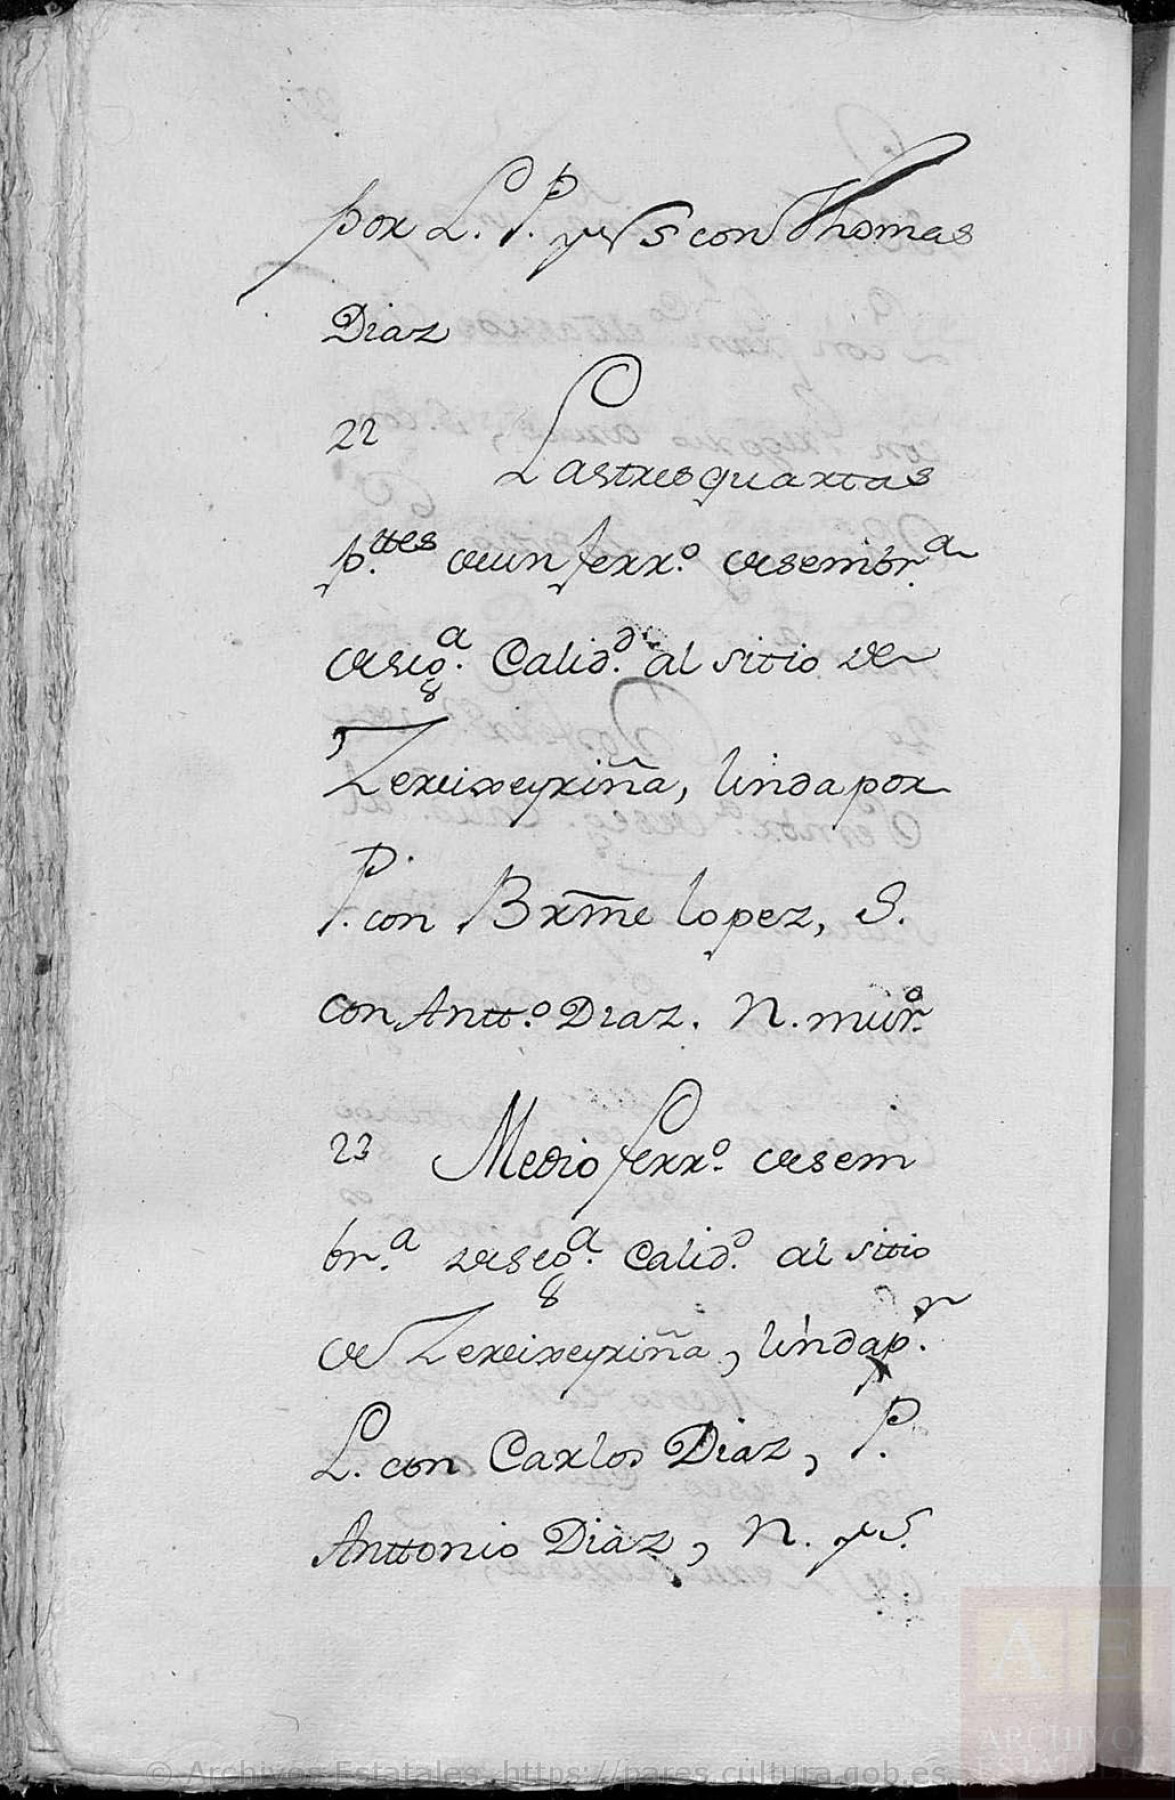 por L. P. y S con Thomas
Diaz
22
Las tres quartas
p.ttes de un ferr.o de sembr.a
de seg.a Calid.d al sitio de
Zereixeyriña, linda por
P. con Brme lopez, S.
con Antt.o Diaz. N. mur.o
23 Medio ferr.o de sem
br.a de seg.a Calid.d al sitio
de Zereixeyriña, linda p.r
L. con Carlos Diaz, P.
Anttonio Diaz, N. y S.
AE
ARCHIVOS
© Archivos Estatales, https://pares.cultura.gob.es